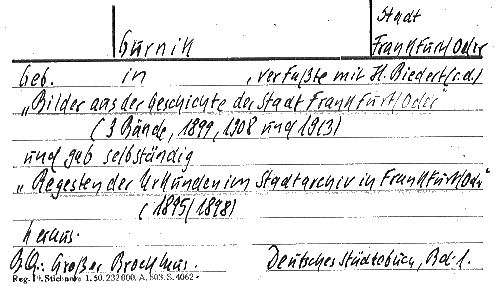 Stadt
Gurnik Frankfurt/Oder
Geb. in , verfaßte mit H. Biedert (s.d.)
„Bilder aus der Geschichte der Stadt Frankfurt/Oder"
(3 Bände, 1899, 1908 und 1913)
und gab selbständig
„Regesten der Urkunden im Stadtarchiv in Frankfurt/Oder"
(1895/1898)
heraus.
Großer Brockhaus. Deutsches Städtebuch, Bd. 1.
1. 50. 232000. A. 803. S. 4062.